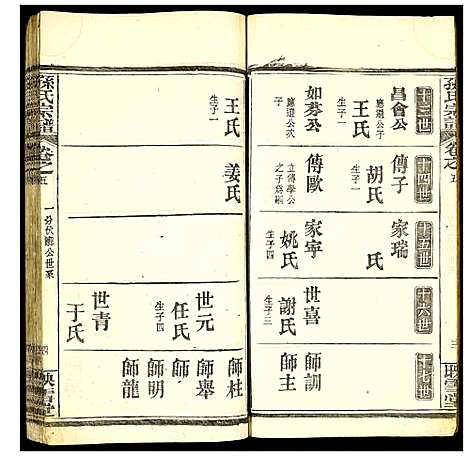 孫氏宗譜
卷之五
映雪堂
十三世
昌會公
應選公次子
王氏
生子一
如芬公
應選公三子
十四世
傳子
胡氏
生子一
傳歐
立傳學公之子爲嗣
十五世
家瑞
氏
家宇
姚氏
生子四
十六世
世喜
謝氏
生子三
十七世
師訓
師主
王氏
生子一
姜氏
世元
任氏
生子四
世青
于氏
師柱
師舉
師明
師龍
孫氏宗譜
卷之五
一分伏龍公世系
映雪堂